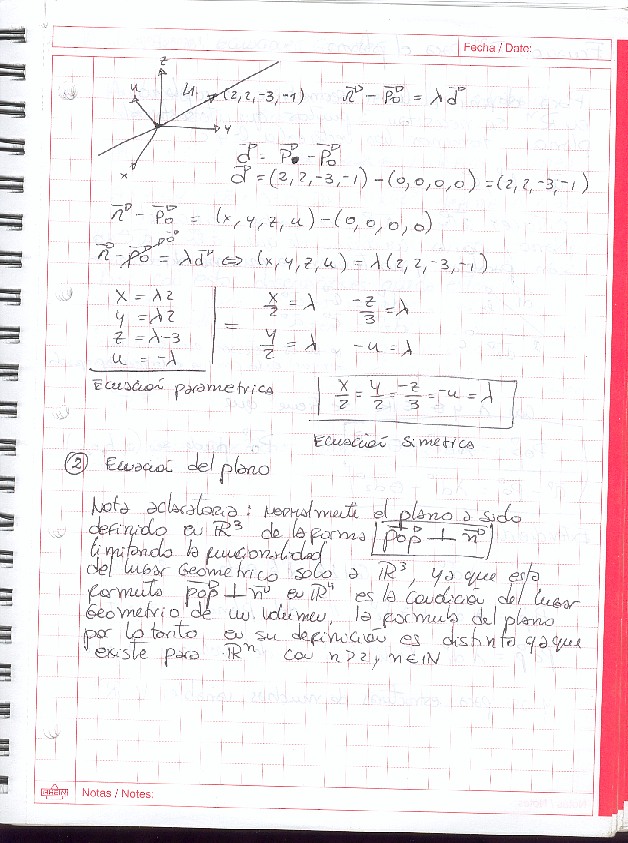 Fecha / Date:
z
u
L1
(2,2,-3,-1)
r⃗ - P⃗o = λ d⃗
y
x
d⃗ = P⃗ - P⃗o
d⃗ = (2,2,-3,-1) - (0,0,0,0) = (2,2,-3,-1)
r⃗ - P⃗o = (x, y, z, u) - (0,0,0,0)
r⃗ - P⃗o = λ d⃗ ⇔ (x, y, z, u) = λ(2,2,-3,-1)
x = λ2
y = λ2
z = λ·-3
u = -λ
=
x/2 = λ
-z/3 = λ
y/2 = λ
-u = λ
Ecuación parametrica
x/2 = y/2 = -z/3 = -u = λ
Ecuación simetrica
② Ecuación del plano
Nota aclaratoria: Normalmente el plano a sido
definido en ℝ³ de la forma P⃗oP ⊥ n⃗
limitando la funcionalidad
del lugar Geometrico solo a ℝ³, ya que esta
formula P⃗oP ⊥ n⃗ en ℝ⁴ es la condición del lugar
Geometrio de un volumen, la formula del plano
por lo tanto en su definición es distinta ya que
existe para ℝⁿ con n>2, n∈ℕ
Notas / Notes: